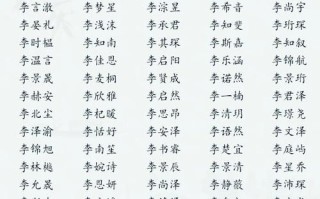 李言澈 李梦星 李淙昱 李希音 李尚宇
李晏礼 李浅沫 李承君 李知斐 李珩琛
李时榅 李知南 李其琛 李斯嘉 李知叙
李温言 李佳恩 李启阳 李乐涵 李锦航
李景晟 李麦桐 李贇成 李诺然 李景行
李赫安 李欣雅 李启然 李一楠 李君泽
李北尘 李杞暖 李思昂 李清玥 李璟尧
李泽渝 李恬妤 李安泽 李语然 李文泽
李锦旭 李南笙 李书睿 李楚宜 李庭屿
李林樾 李婉诗 李景辰 李景清 李星乔
李允晟 李思妍 李尚泽 李静薇 李沛琛